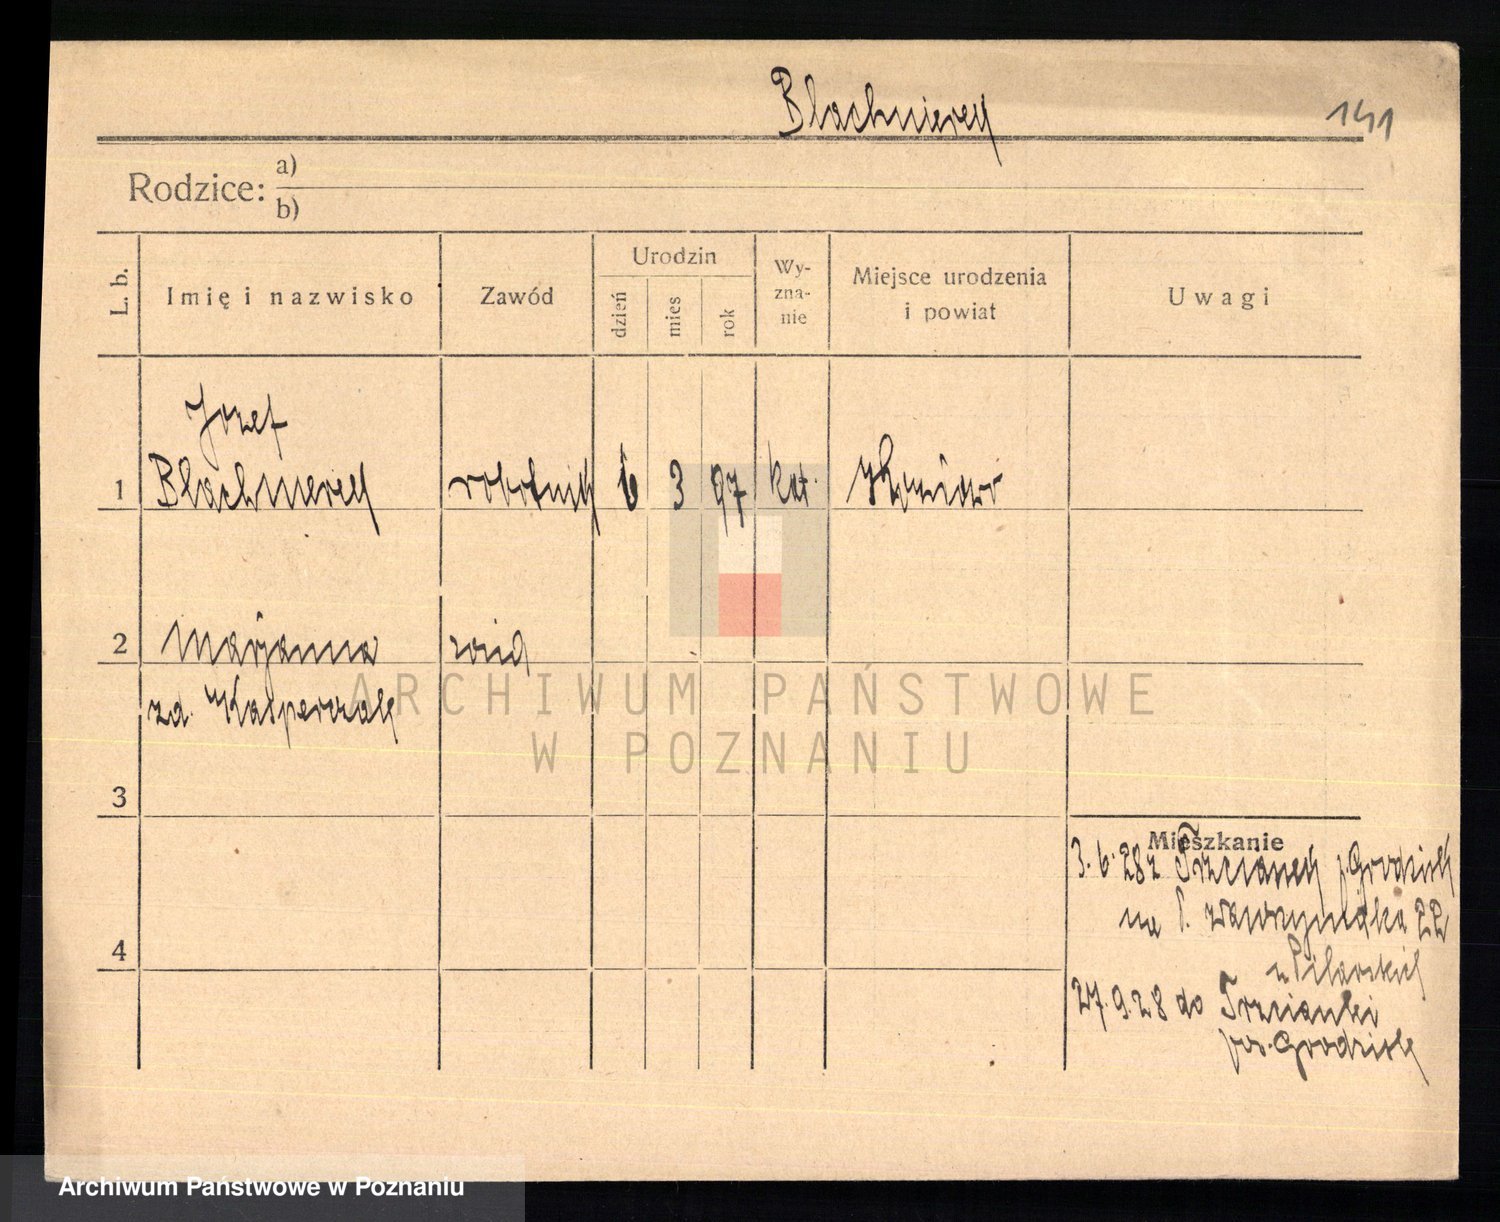 Blachnierek
141
Rodzice: a)
b)
L. b.
Imię i nazwisko
Zawód
Urodzin
dzień
mies
rok
Wy-
zna-
nie
Miejsce urodzenia
i powiat
Uwagi
Józef
1 Blachnierek robotnik 6 3 97 kat.
2 Marjanna
za. Kasperczak
3
4
Mieszkanie
3.6.28 z p. Grodzisk
na 22
27.9.28 do Trzcianki
pow. Grodzisk
ARCHIWUM PAŃSTWOWE
W POZNANIU
Archiwum Państwowe w Poznaniu